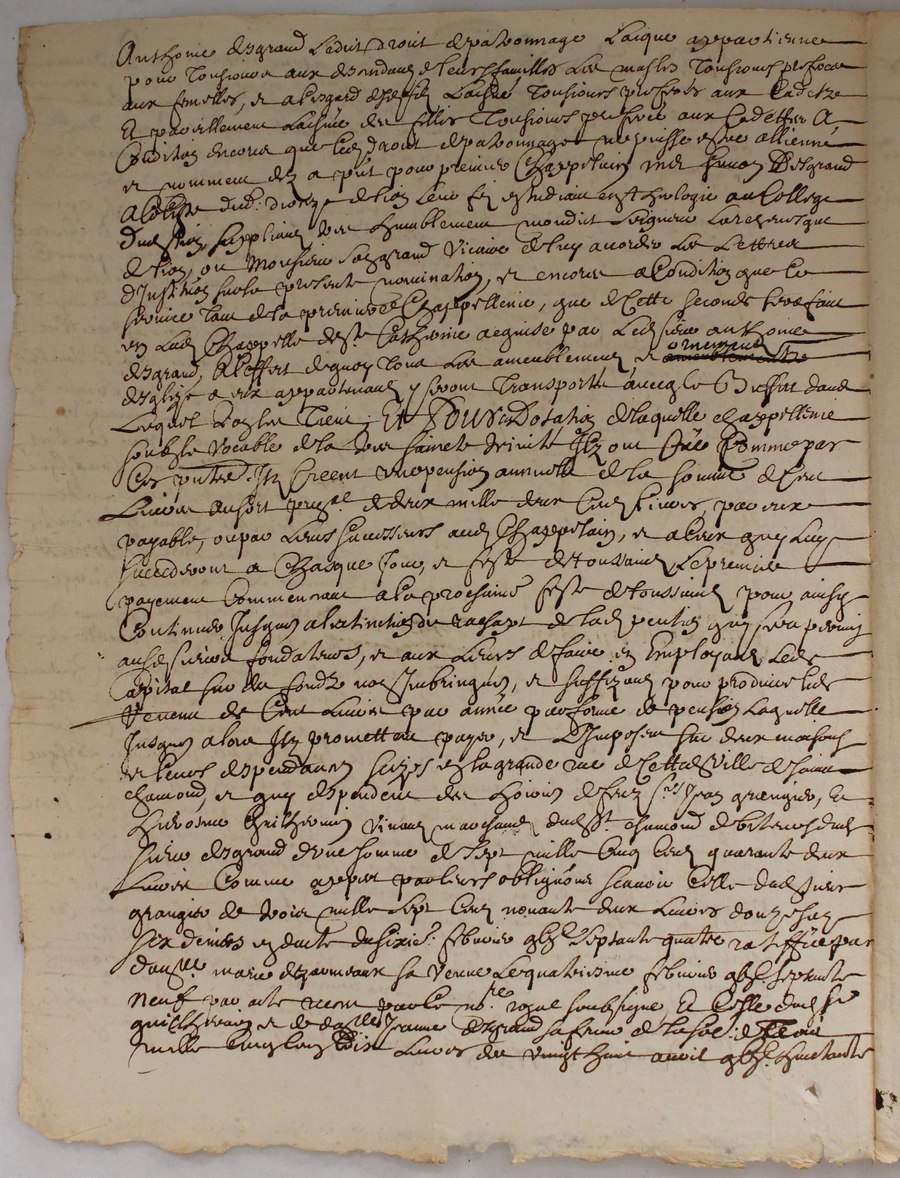 Anthoine desgrand Ledict droit de patronnage Laique appartienne
pour Tousiours aux descendans de leurs familles Les masles Tousiours preferes
aux femelles, et a l'esgard des fils Laisné Tousiours preferés aux Cadetz
Et pareillement Laisnée des filles Tousiours preferée aux Cadettes A
Condition encores que led droit de patronnage ne puisse estre alliené
et nomment dez a pñt pour premier Chappelain desgrand
dud: dioceze de Lion Leur filz estudiant en theologie au College
Supplians tres humblement mondict Seigneur Larchevesque
de Lion, ou Monsieur Son grand Vicaire de luy accorder Les Lettres
d'Institution sur la presente nomination, et encores a Condition que le
service Tant de la premiere Chappellenie, que de Cette seconde sera faict
en Lad Chappelle de Ste Catherine acquise par Led sieur anthoine
desgrand, A l'effect de quoy Tous Les ameublemens et ornemens
d'eglize a eux appartenans y seront Transportés avecq le Buffet dans
Lequel on les Tient, Et pour dotation de laquelle chappellenie
soubz le vocable de la tres saincte trinité Ilz ont Créé Comme par
Ces pñtes Ilz Creent une pension annuelle de la somme de Cent
Livres au sort prĩal de deux mille deux Cens Livres, par eux
payable, ou par Leurs successeurs aud Chappelain, et a Ceux quy Luy
succederont a Chasque Jour et feste de Toussains Le premier
payement Commencant a la prochaine feste de Toussains pour ainsy
Continuer Jusques a l'extinction et rachapt de lad pention quy sera permis
ausd sieurs fondateurs, et aux Leurs de faire en Employant Led
Capital sur des fondz non Imbringués, et suffizans pour produire led
revenu de Cent Livres par année par forme de pension Laquelle
Jusques alors Ilz promettent payer, et L'Imposent sur deux maisons
et leurs despendances scizes en la grande rue de Cette ville de Sainct
chamond, et quy despendent des hoirs de feuz Srs Jean grangier, Et
hierosme vivans marchands dud St chamond debiteurs dud
sieur desgrand d'une somme de Sept mille Cinq Cens quarante deux
Livres Comme appert par leurs obligãons scavoir Celle dud sieur
grangier de trois mille sept Cens nonante deux Livres douze solz
six deniers en datte du sixie: febvrier gbjc septante quatre ratiffiée par
damlle marie sa veufve Le quatriesme febvrier gbjc septante
neuf par acte receu par Le nore royal soubsigné, Et Celle dud Sr
et de damlle Jeanne desgrand sa femme de la so: de Trois
mille Cinq Cens Livres du vingt huict avril gbjc huictante